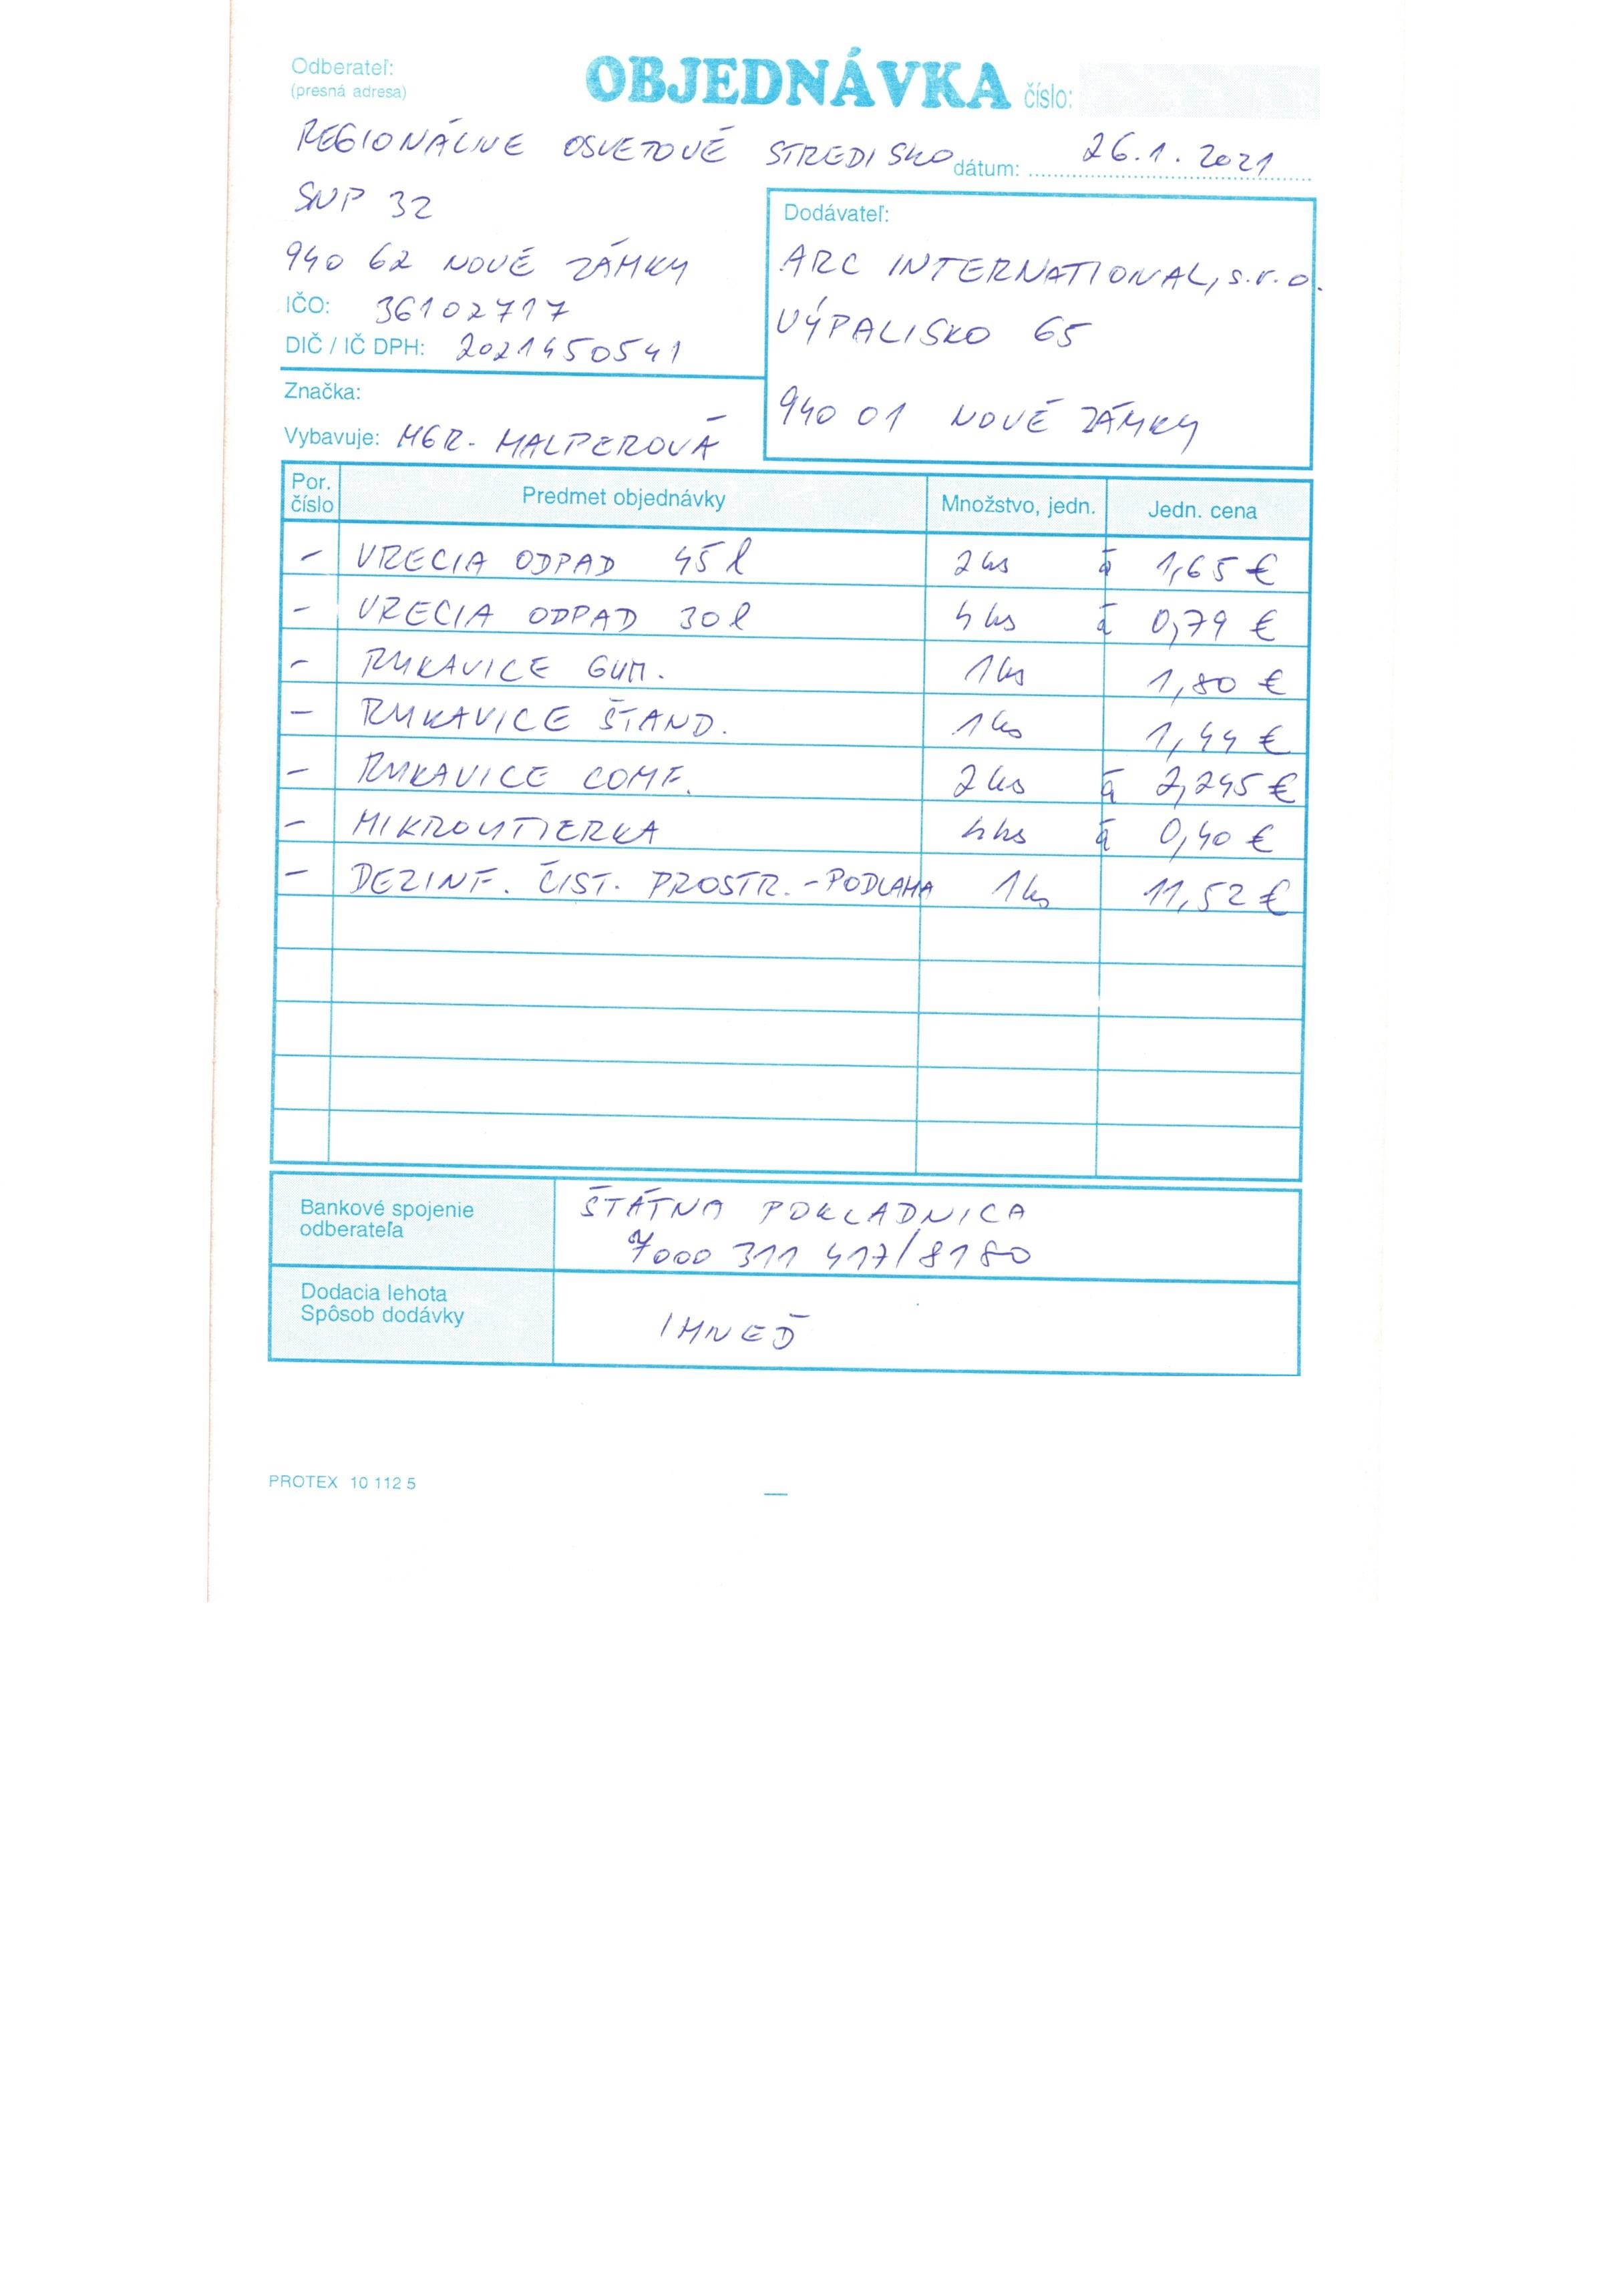 Odberateľ:
(presná adresa)
OBJEDNÁVKA číslo:
REGIONÁLNE OSVETOVÉ STREDISKO
dátum: 26.1.2021
SNP 32
940 62 NOVÉ ZÁMKY
IČO: 36102717
DIČ / IČ DPH: 2021450541
Značka:
Vybavuje: MGR. MALPEROVÁ
Dodávateľ:
ARC INTERNATIONAL, s.r.o.
VÝPALISKO 65
940 01 NOVÉ ZÁMKY
Por. číslo Predmet objednávky Množstvo, jedn. Jedn. cena
- VRECIA ODPAD 45 l 2 ks á 1,65 €
- VRECIA ODPAD 30 l 4 ks á 0,79 €
- RUKAVICE GUM. 1 ks 1,80 €
- RUKAVICE ŠTAND. 1 ks 1,44 €
- RUKAVICE COMF. 2 ks á 2,245 €
- MIKROUTIERKA 4 ks á 0,40 €
- DEZINF. ČIST. PROSTR. - PODLAHA 1 ks 11,52 €
Bankové spojenie
odberateľa
ŠTÁTNA POKLADNICA
7000 311 417/8180
Dodacia lehota
Spôsob dodávky
IHNEĎ
PROTEX 10 112 5